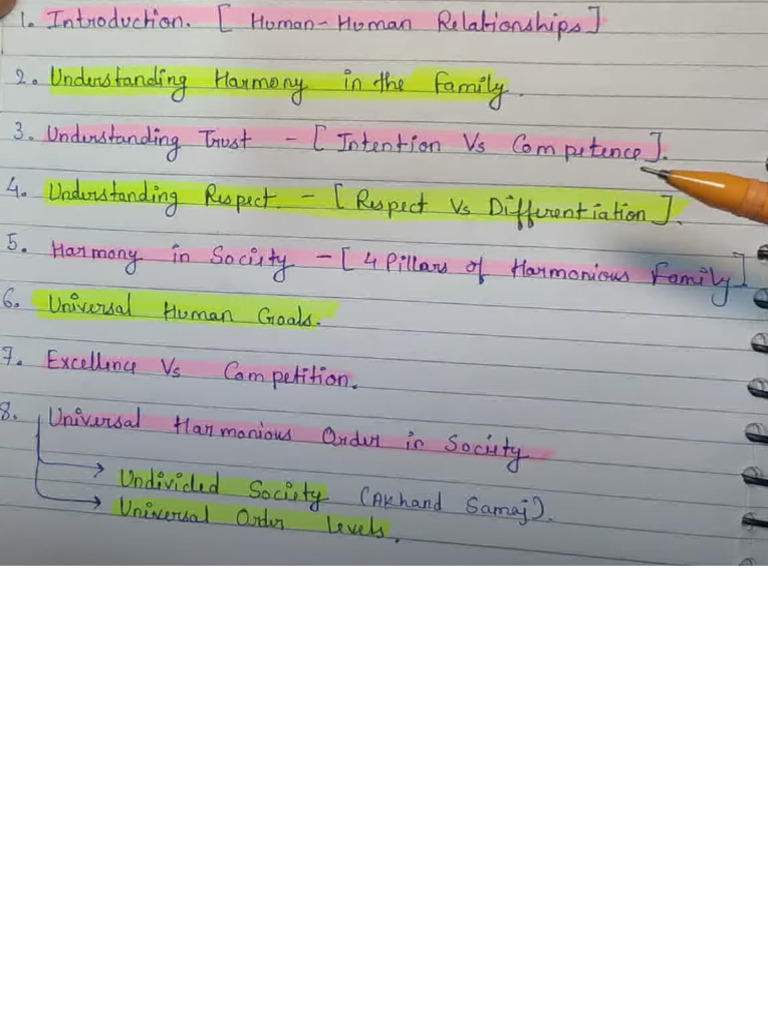 1. Introduction. [ Human-Human Relationships]
2. Understanding Harmony in the Family.
3. Understanding Trust - [Intention Vs Competence].
4. Understanding Respect - [Respect Vs Differentiation].
5. Harmony in Society - [4 Pillars of Harmonious Family]
6. Universal Human Goals.
7. Excellence Vs Competition.
8. Universal Harmonious Order in Society
→ Undivided Society (Akhand Samaj).
→ Universal Order Levels.